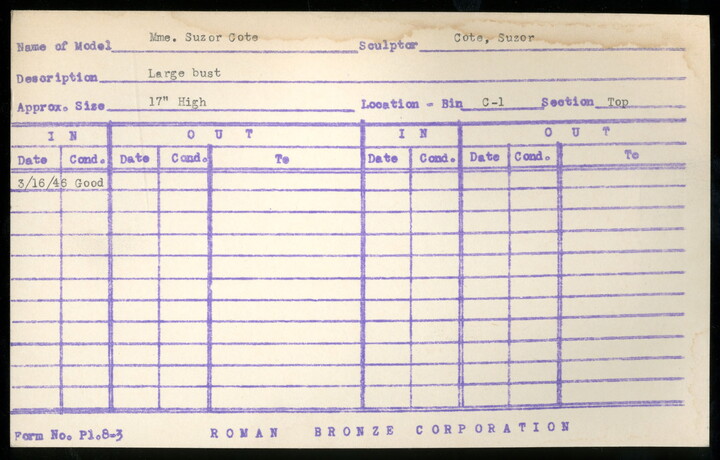 Name of Model Mme. Suzor Cote Sculptor Cote, Suzor
Description Large bust
Approx. Size 17" High Location - Bin C-1 Section Top
I N O U T I N O U T
Date Cond. Date Cond. To Date Cond. Date Cond. To
3/16/46 Good
Form No. Pl.8-3 ROMAN BRONZE CORPORATION